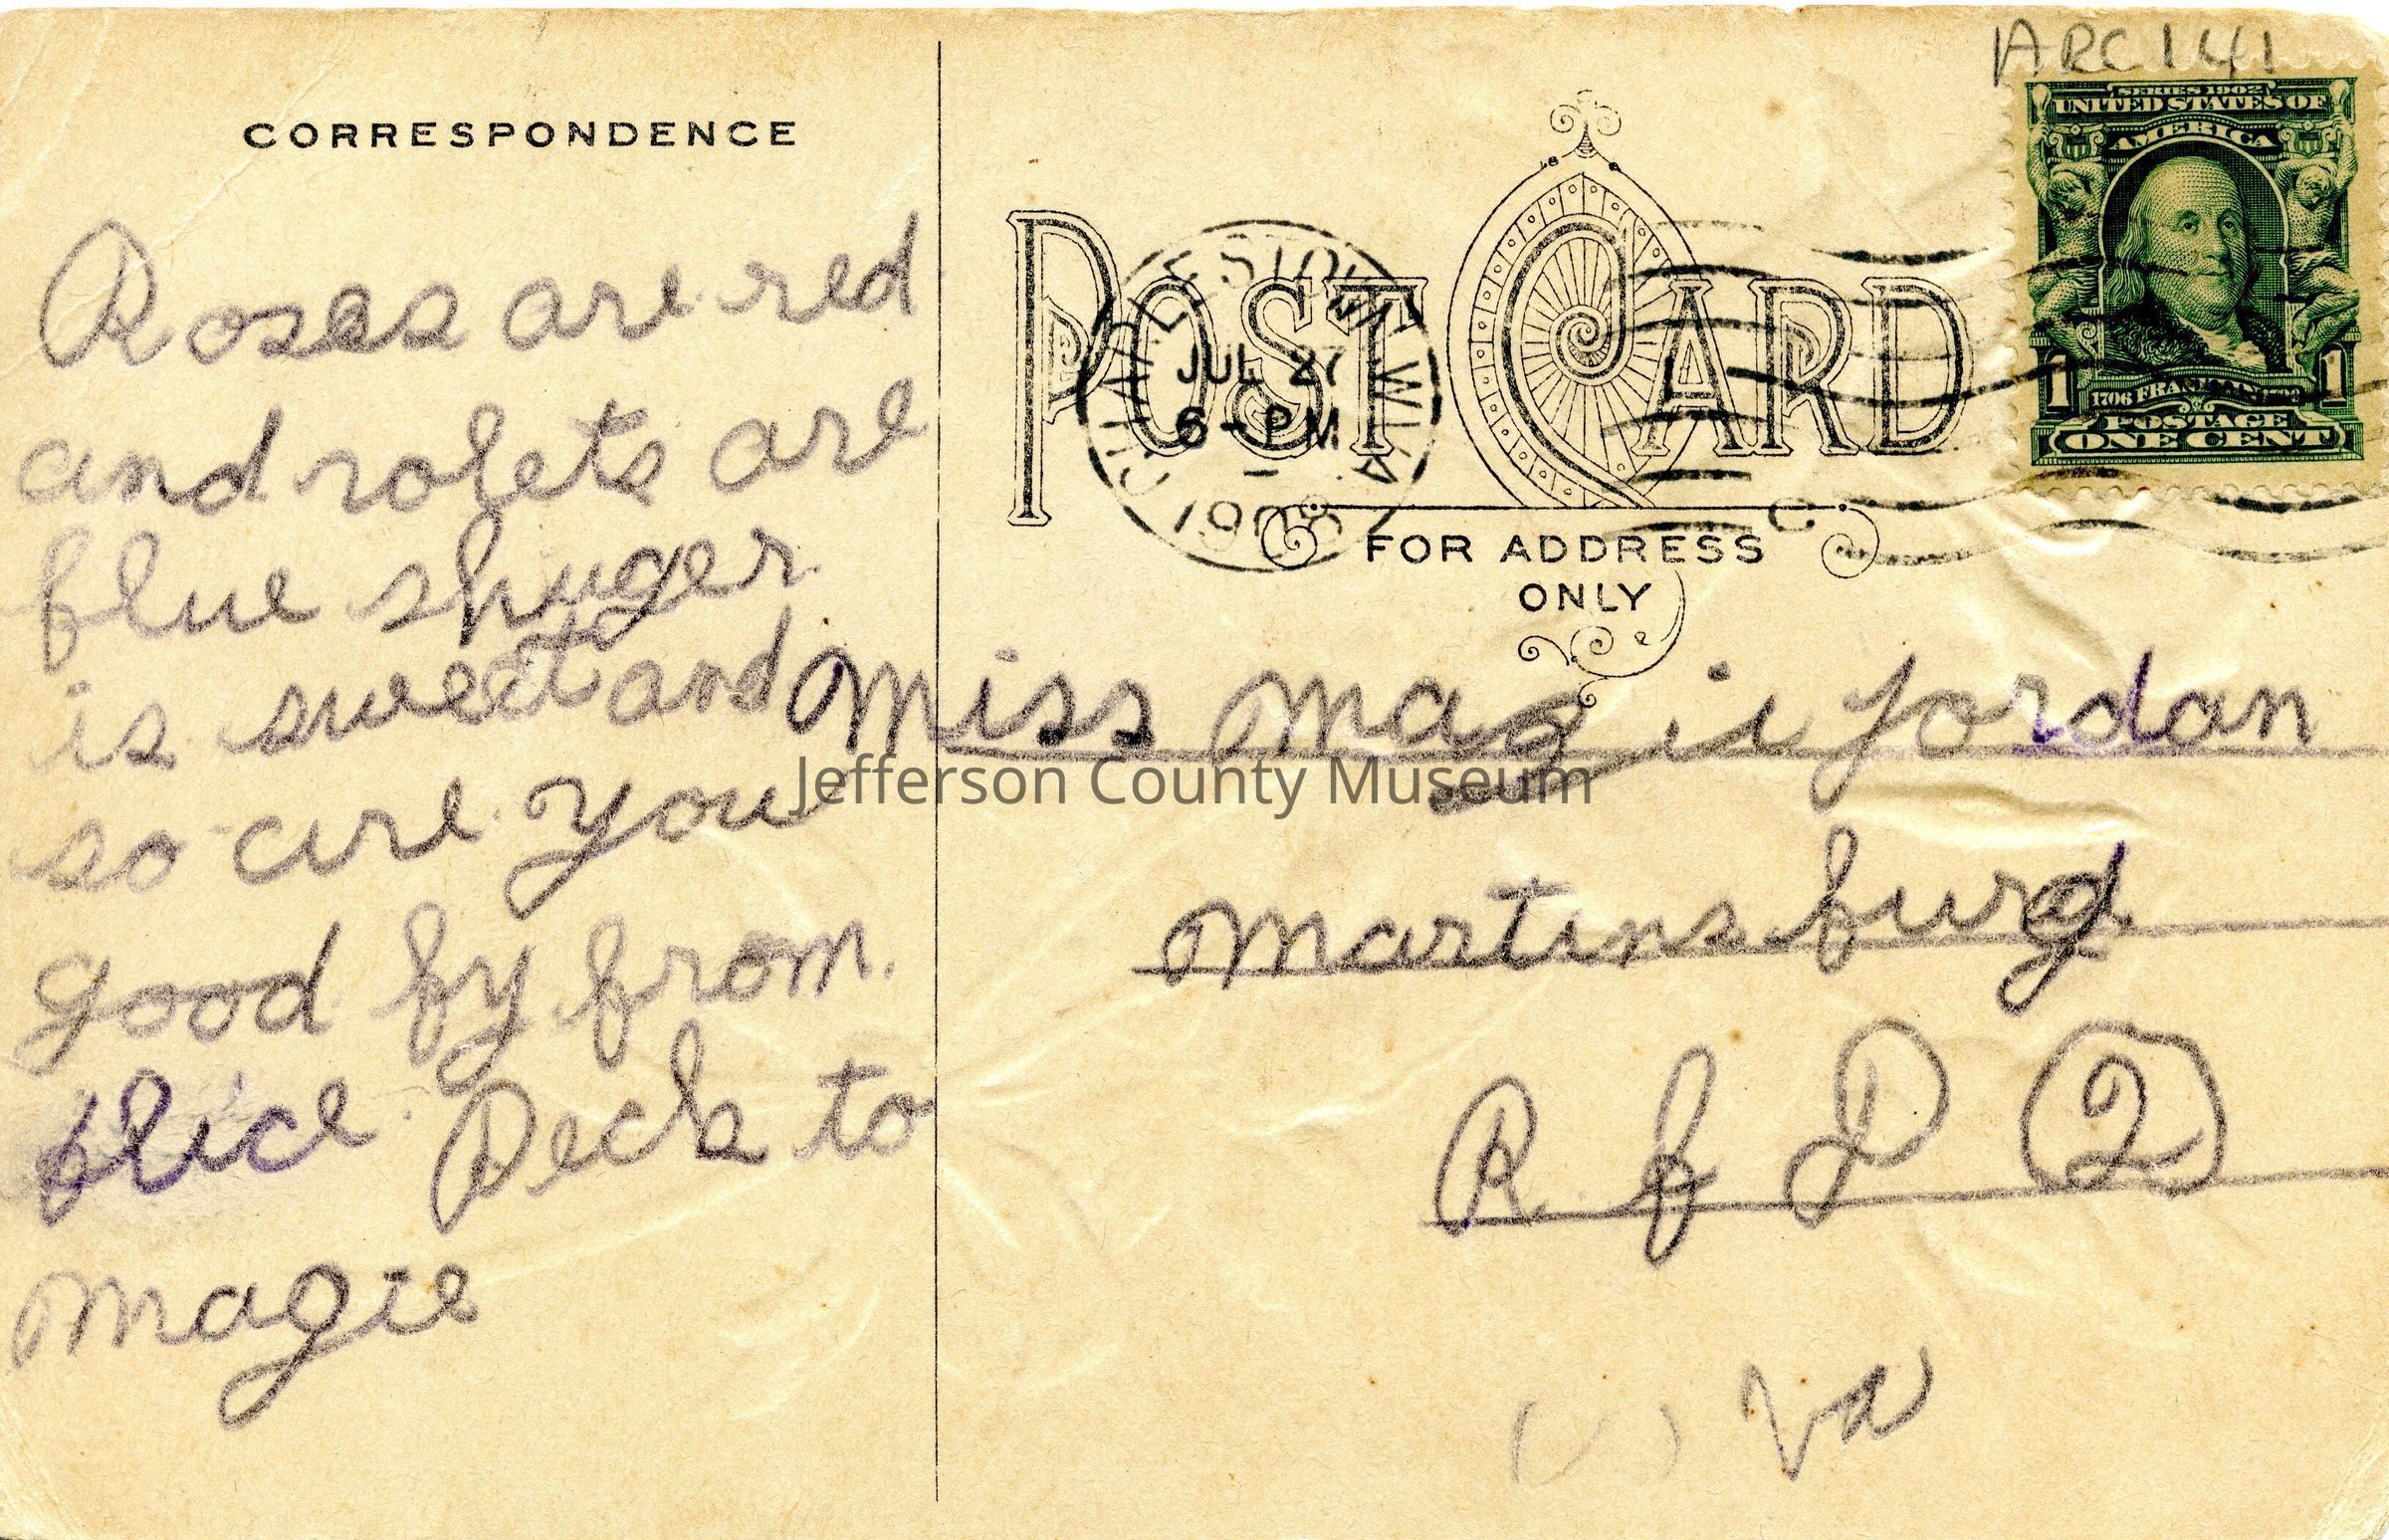 ARC 141
SERIES 1902
UNITED STATES OF
AMERICA
1 1706 FRANKLIN 1790 1
POSTAGE
ONE CENT
CORRESPONDENCE
Roses are red
and rolets are
blue shuger.
is sweet and
so are you
good by from.
Alice Deck to
Magie
POST CARD
CHARLESTOWN W.VA.
JUL 27
6-PM
1908
FOR ADDRESS
ONLY
Miss Magie Jordan
Martinsburg
R f D 2
Va
Jefferson County Museum